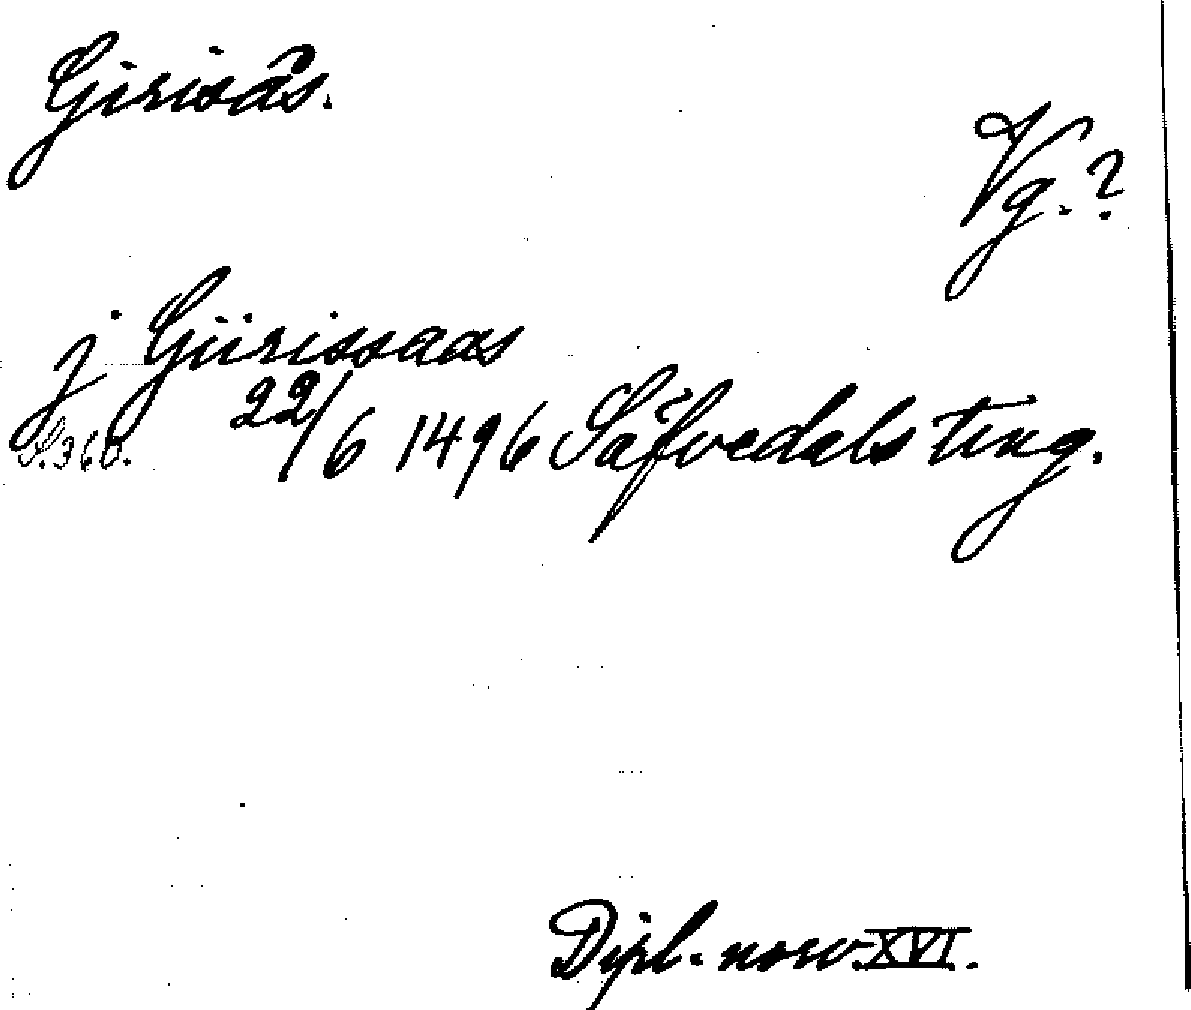 Girisås.
Vg.?
j Giirissaas
S.360. 22/6 1496 Säfvedals ting.
Dipl. norv. XVI.